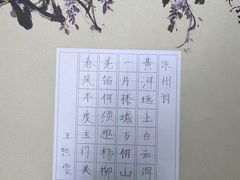 凉州词
黄河远上白云间
一片孤城万仞山
羌笛何须怨杨柳
春风不度玉门关
王熙